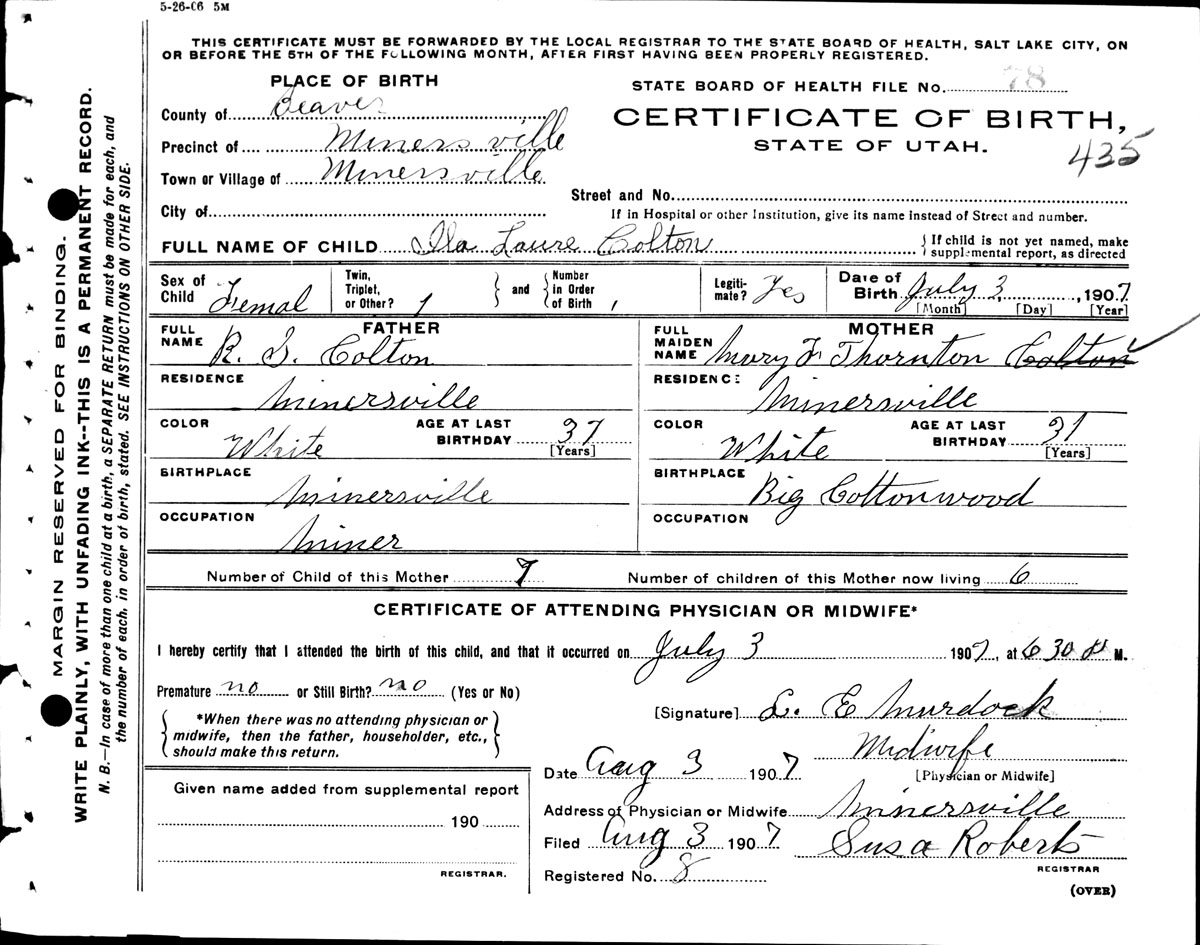 5-26-06 5M
THIS CERTIFICATE MUST BE FORWARDED BY THE LOCAL REGISTRAR TO THE STATE BOARD OF HEALTH, SALT LAKE CITY, ON
OR BEFORE THE 5TH OF THE FOLLOWING MONTH, AFTER FIRST HAVING BEEN PROPERLY REGISTERED.
PLACE OF BIRTH
STATE BOARD OF HEALTH FILE No. 78
County of Beaver
CERTIFICATE OF BIRTH,
Precinct of Minersville
STATE OF UTAH.
435
Town or Village of Minersville
Street and No.
City of
If in Hospital or other Institution, give its name instead of Street and number.
FULL NAME OF CHILD Ila Laure Colton
If child is not yet named, make
supplemental report, as directed
Sex of Child Femal
Twin, Triplet, or Other? 1
and
Number in Order of Birth 1
Legiti-mate? Yes
Date of Birth July 3, 1907
[Month] [Day] [Year]
FATHER
FULL NAME R. S. Colton
RESIDENCE Minersville
COLOR White
AGE AT LAST BIRTHDAY 37
[Years]
BIRTHPLACE Minersville
OCCUPATION Miner
MOTHER
FULL MAIDEN NAME Mary F Thornton Colton
RESIDENCE Minersville
COLOR White
AGE AT LAST BIRTHDAY 31
[Years]
BIRTHPLACE Big Cottonwood
OCCUPATION
Number of Child of this Mother 7
Number of children of this Mother now living 6
CERTIFICATE OF ATTENDING PHYSICIAN OR MIDWIFE*
I hereby certify that I attended the birth of this child, and that it occurred on July 3 1907, at 6 30 M.
Premature no or Still Birth? no (Yes or No)
[Signature] L. E Murdock
*When there was no attending physician or
midwife, then the father, householder, etc.,
should make this return.
Midwife
[Physician or Midwife]
Date Aug 3 1907
Given name added from supplemental report
190
REGISTRAR.
Address of Physician or Midwife Minersville
Filed Aug 3 1907 Susa Roberts
REGISTRAR
Registered No. 8
(OVER)
MARGIN RESERVED FOR BINDING.
WRITE PLAINLY, WITH UNFADING INK--THIS IS A PERMANENT RECORD.
N. B.—In case of more than one child at a birth, a SEPARATE RETURN must be made for each, and
the number of each, in order of birth, stated. SEE INSTRUCTIONS ON OTHER SIDE.